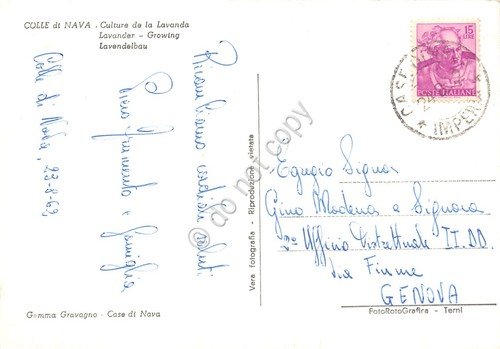 COLLE di NAVA - Culture de la Lavanda
Lavander - Growing
Lavendelbau
Colle di Nava, 23-8-63
Ricambiamo cordiali saluti
e famiglia
Gemma Gravagno - Case di Nava
Vera fotografia - Riproduzione vietata
do not copy
15
LIRE
POSTE ITALIANE
CASE DI
* IMPERIA
Egregio Signor
Gino Modena e Signora
2° Ufficio Distrettuale II.DD.
Via Fiume
GENOVA
FotoRotoGrafira - Terni